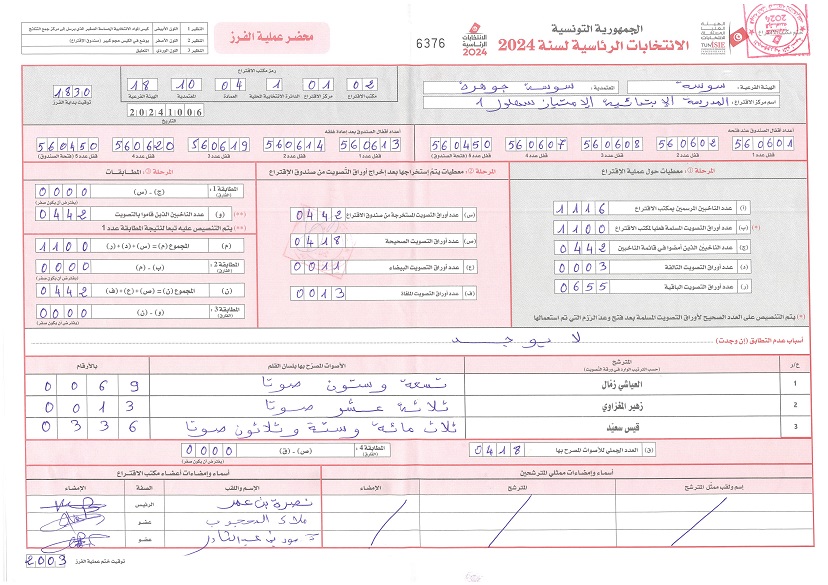 الجمهورية التونسية
الانتخابات الرئاسية لسنة 2024
الانتخابات الرئاسية 2024
6376
محضر عملية الفرز
النظير 1 | اللون الأصفر
النظير 2 | اللون الأصفر
النظير 3 | اللون الوردي | التعليق
الهيئة الفرعية: سوسة
المعتمدية: سوسة جوهرة
اسم مركز الاقتراع: المدرسة الابتدائية الامتياز سهلول 1
رمز مكتب الاقتراع
02 01 01 04 10 18
مكتب الاقتراع مركز الاقتراع الدائرة الانتخابية المحلية العمادة المعتمدية الهيئة الفرعية
20241006
التاريخ
1830
توقيت بداية الفرز
أعداد أقفال الصندوق عند فتحه
560601 560602 560608 560607 560450
قفل عدد 1 قفل عدد 2 قفل عدد 3 قفل عدد 4 قفل عدد 5 (فتحة الصندوق)
أعداد أقفال الصندوق بعد إعادة غلقه
560613 560614 560619 560620 560450
قفل عدد 1 قفل عدد 2 قفل عدد 3 قفل عدد 4 قفل عدد 5 (فتحة الصندوق)
المرحلة 1: معطيات حول عملية الاقتراع
(أ) عدد الناخبين المرسمين بمكتب الاقتراع 1116
(*) (ب) عدد أوراق التصويت المسلمة فعليا لمكتب الاقتراع 1100
(ج) عدد الناخبين الذين أمضوا في قائمة الناخبين 0442
(د) عدد أوراق التصويت التالفة 0003
(ر) عدد أوراق التصويت الباقية 0655
(*) يتم التنصيص على العدد الصحيح لأوراق التصويت المسلمة بعد فتح وعد الرزم التي تم استعمالها
المرحلة 2: معطيات يتم استخراجها بعد إخراج أوراق التصويت من صندوق الاقتراع
(س) عدد أوراق التصويت المستخرجة من صندوق الاقتراع 0442
(ص) عدد أوراق التصويت الصحيحة 0418
(ع) عدد أوراق التصويت البيضاء 0011
(ف) عدد أوراق التصويت الملغاة 0013
المرحلة 3: المطابقات
المطابقة 1: (الفارق) (ج) - (س) 0000 (يفترض أن يكون صفر)
(**) (و) عدد الناخبين الذين قاموا بالتصويت 0442
(**) يتم التنصيص عليه تبعا لنتيجة المطابقة عدد 1
(م) المجموع (م) = (س)+(د)+(ر) 1100
المطابقة 2: (الفارق) (ب) - (م) 0000 (يفترض أن يكون صفر)
(ن) المجموع (ن) = (ص)+(ع)+(ف) 0442
المطابقة 3: (الفارق) (و) - (ن) 0000 (يفترض أن يكون صفر)
أسباب عدم التطابق (إن وجدت) لا يوجد
ع/ر | المترشح (حسب الترتيب الوارد في ورقة التصويت) | الأصوات المصرح بها بلسان القلم | بالأرقام
1 | العياشي زمّال | تسعة وستون صوتا | 0069
2 | زهير المغزاوي | ثلاثة عشر صوتا | 0013
3 | قيس سعيّد | ثلاث مائة وستة وثلاثون صوتا | 0336
(ق) العدد الجملي للأصوات المصرح بها 0418
المطابقة 4: (الفارق) (ص) - (ق) 0000 (يفترض أن يكون صفر)
أسماء وإمضاءات ممثلي المترشحين
إسم ولقب ممثل المترشح | المترشح | الإمضاء
أسماء وإمضاءات أعضاء مكتب الاقتراع
الاسم واللقب | الصفة | الإمضاء
بن عمر | الرئيس
ملاك | عضو
عبد القادر | عضو
توقيت ختم عملية الفرز 2003